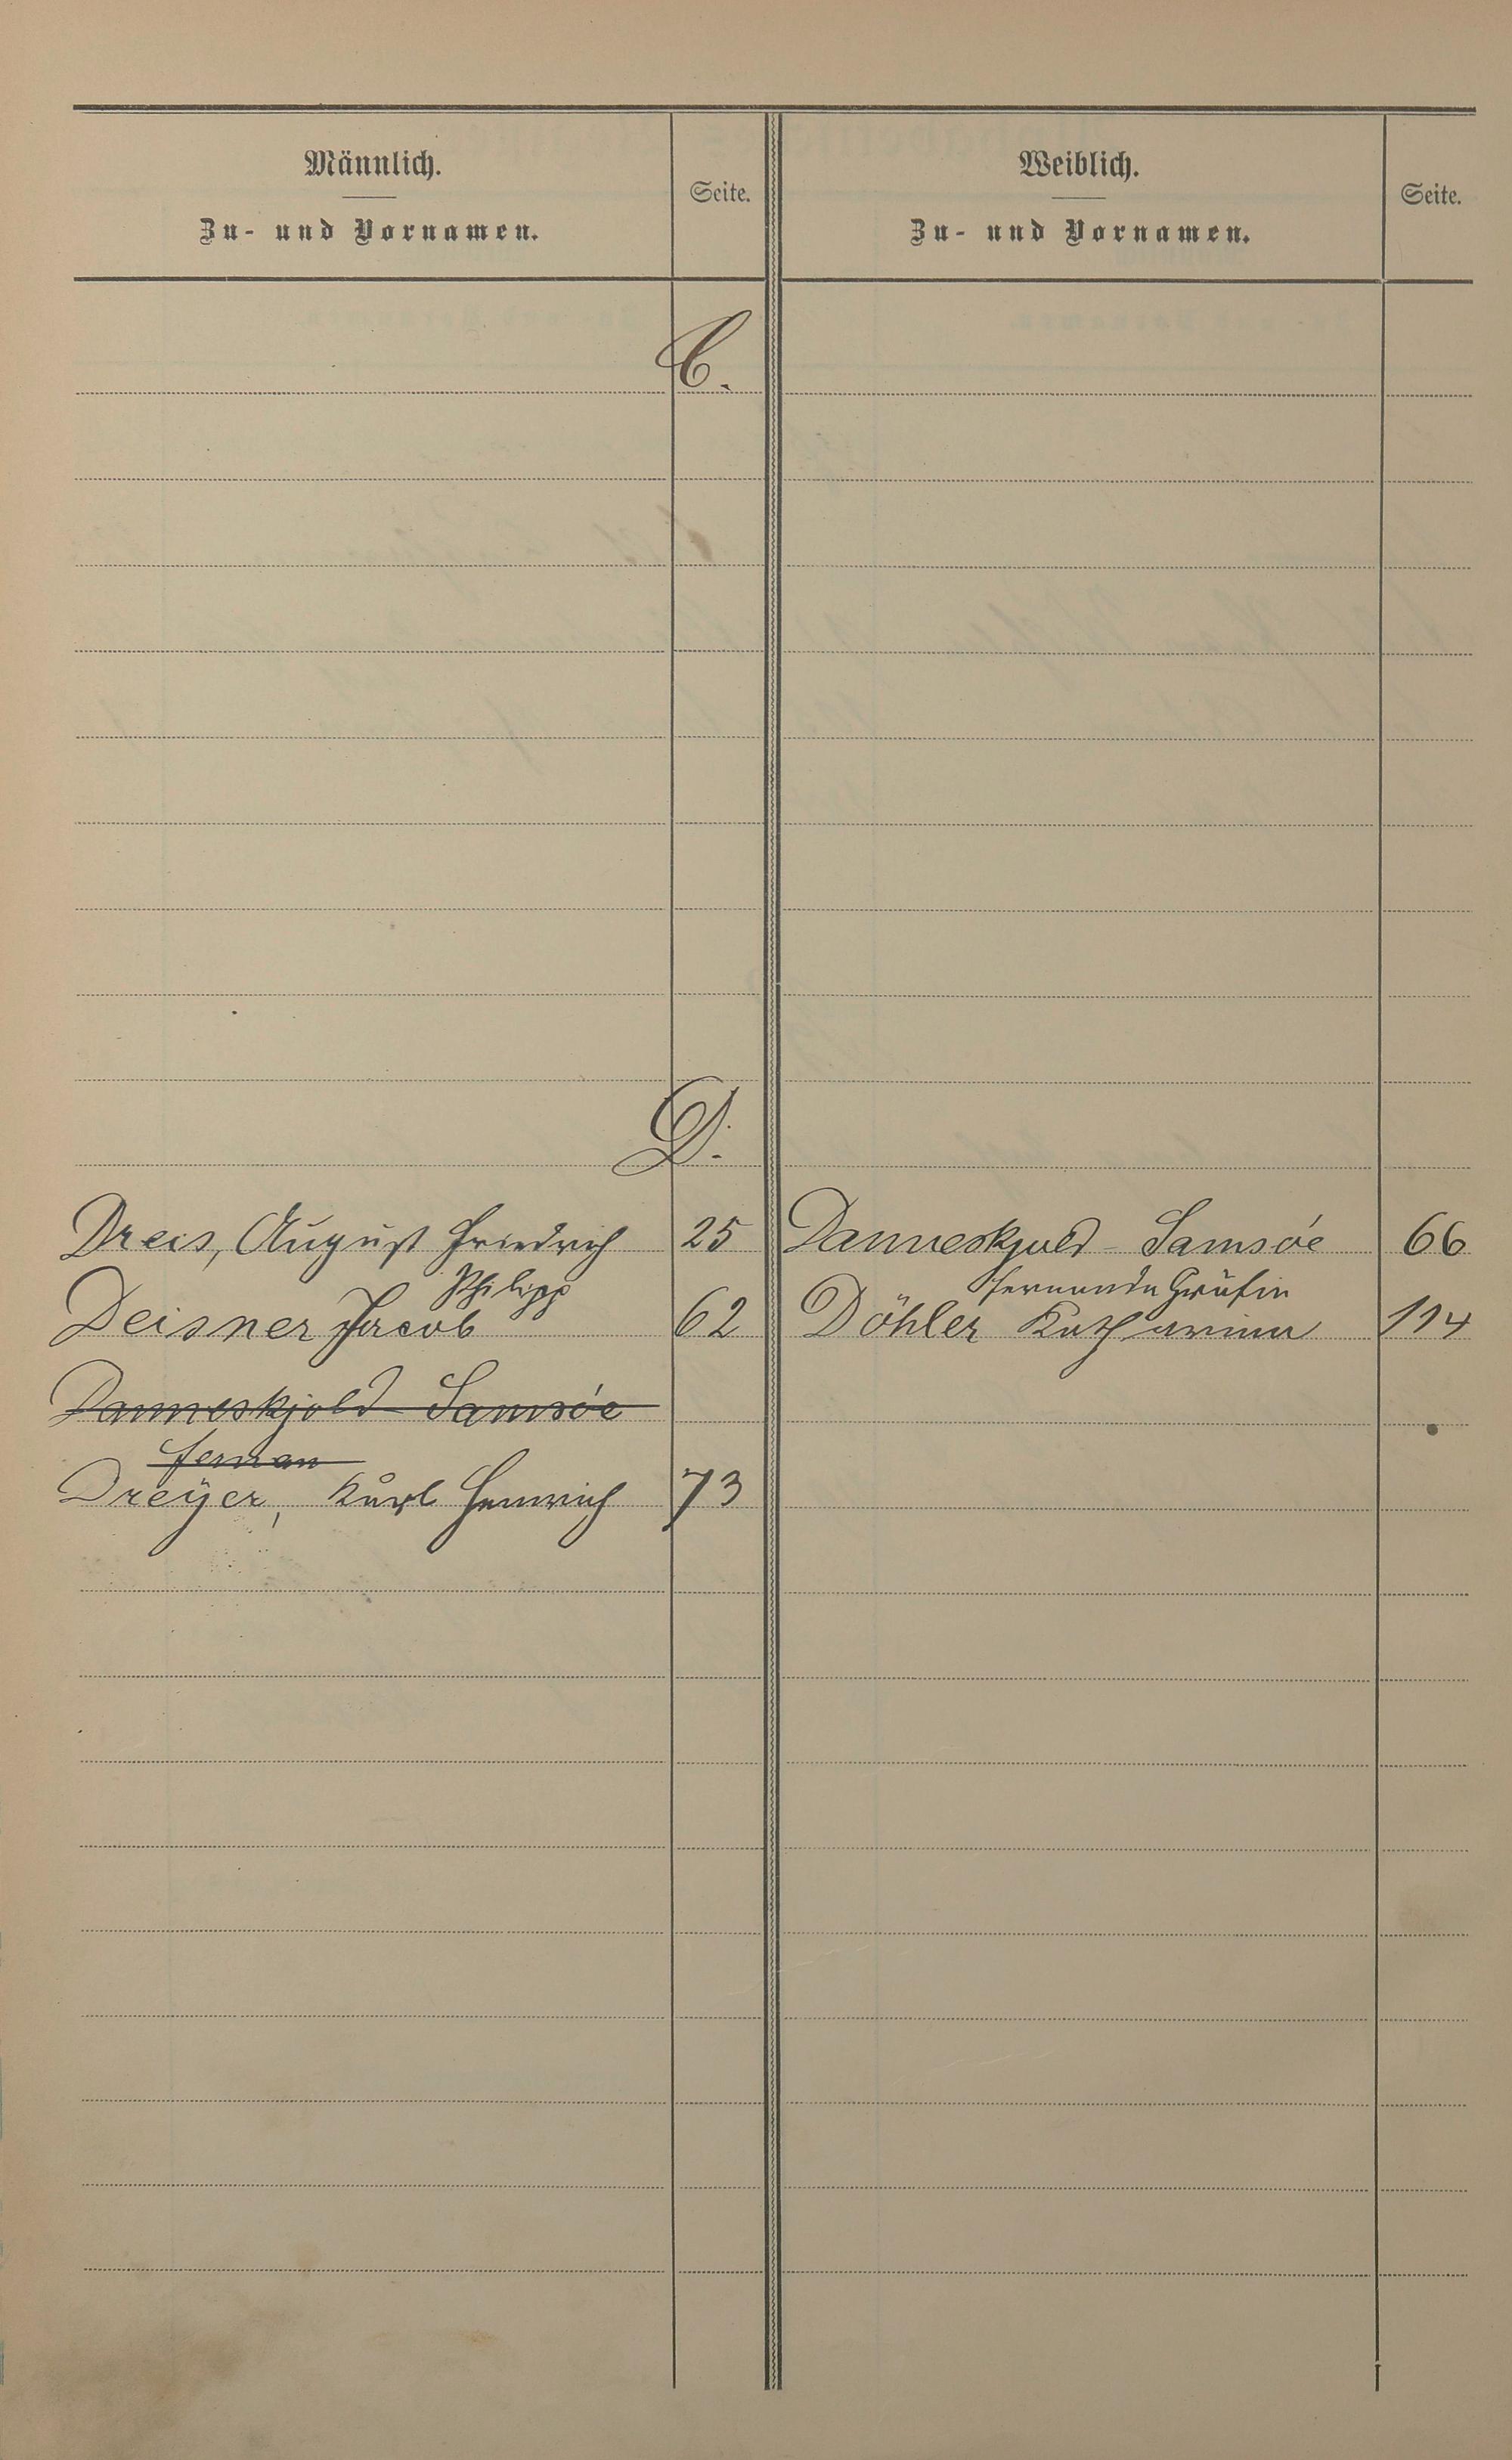 Männlich.
Zu- und Vornamen.
Seite.
Weiblich.
Zu- und Vornamen.
Seite.
C.
D.
Dreis, August Friedrich 25
Philipp
Deisner Jacob 62
Danneskjold-Samsóe
Fernan
Dreÿer, Karl Heinrich 73
Danneskjold-Samsóe 66
Fernanda Gräfin
Döhler Katharina 114